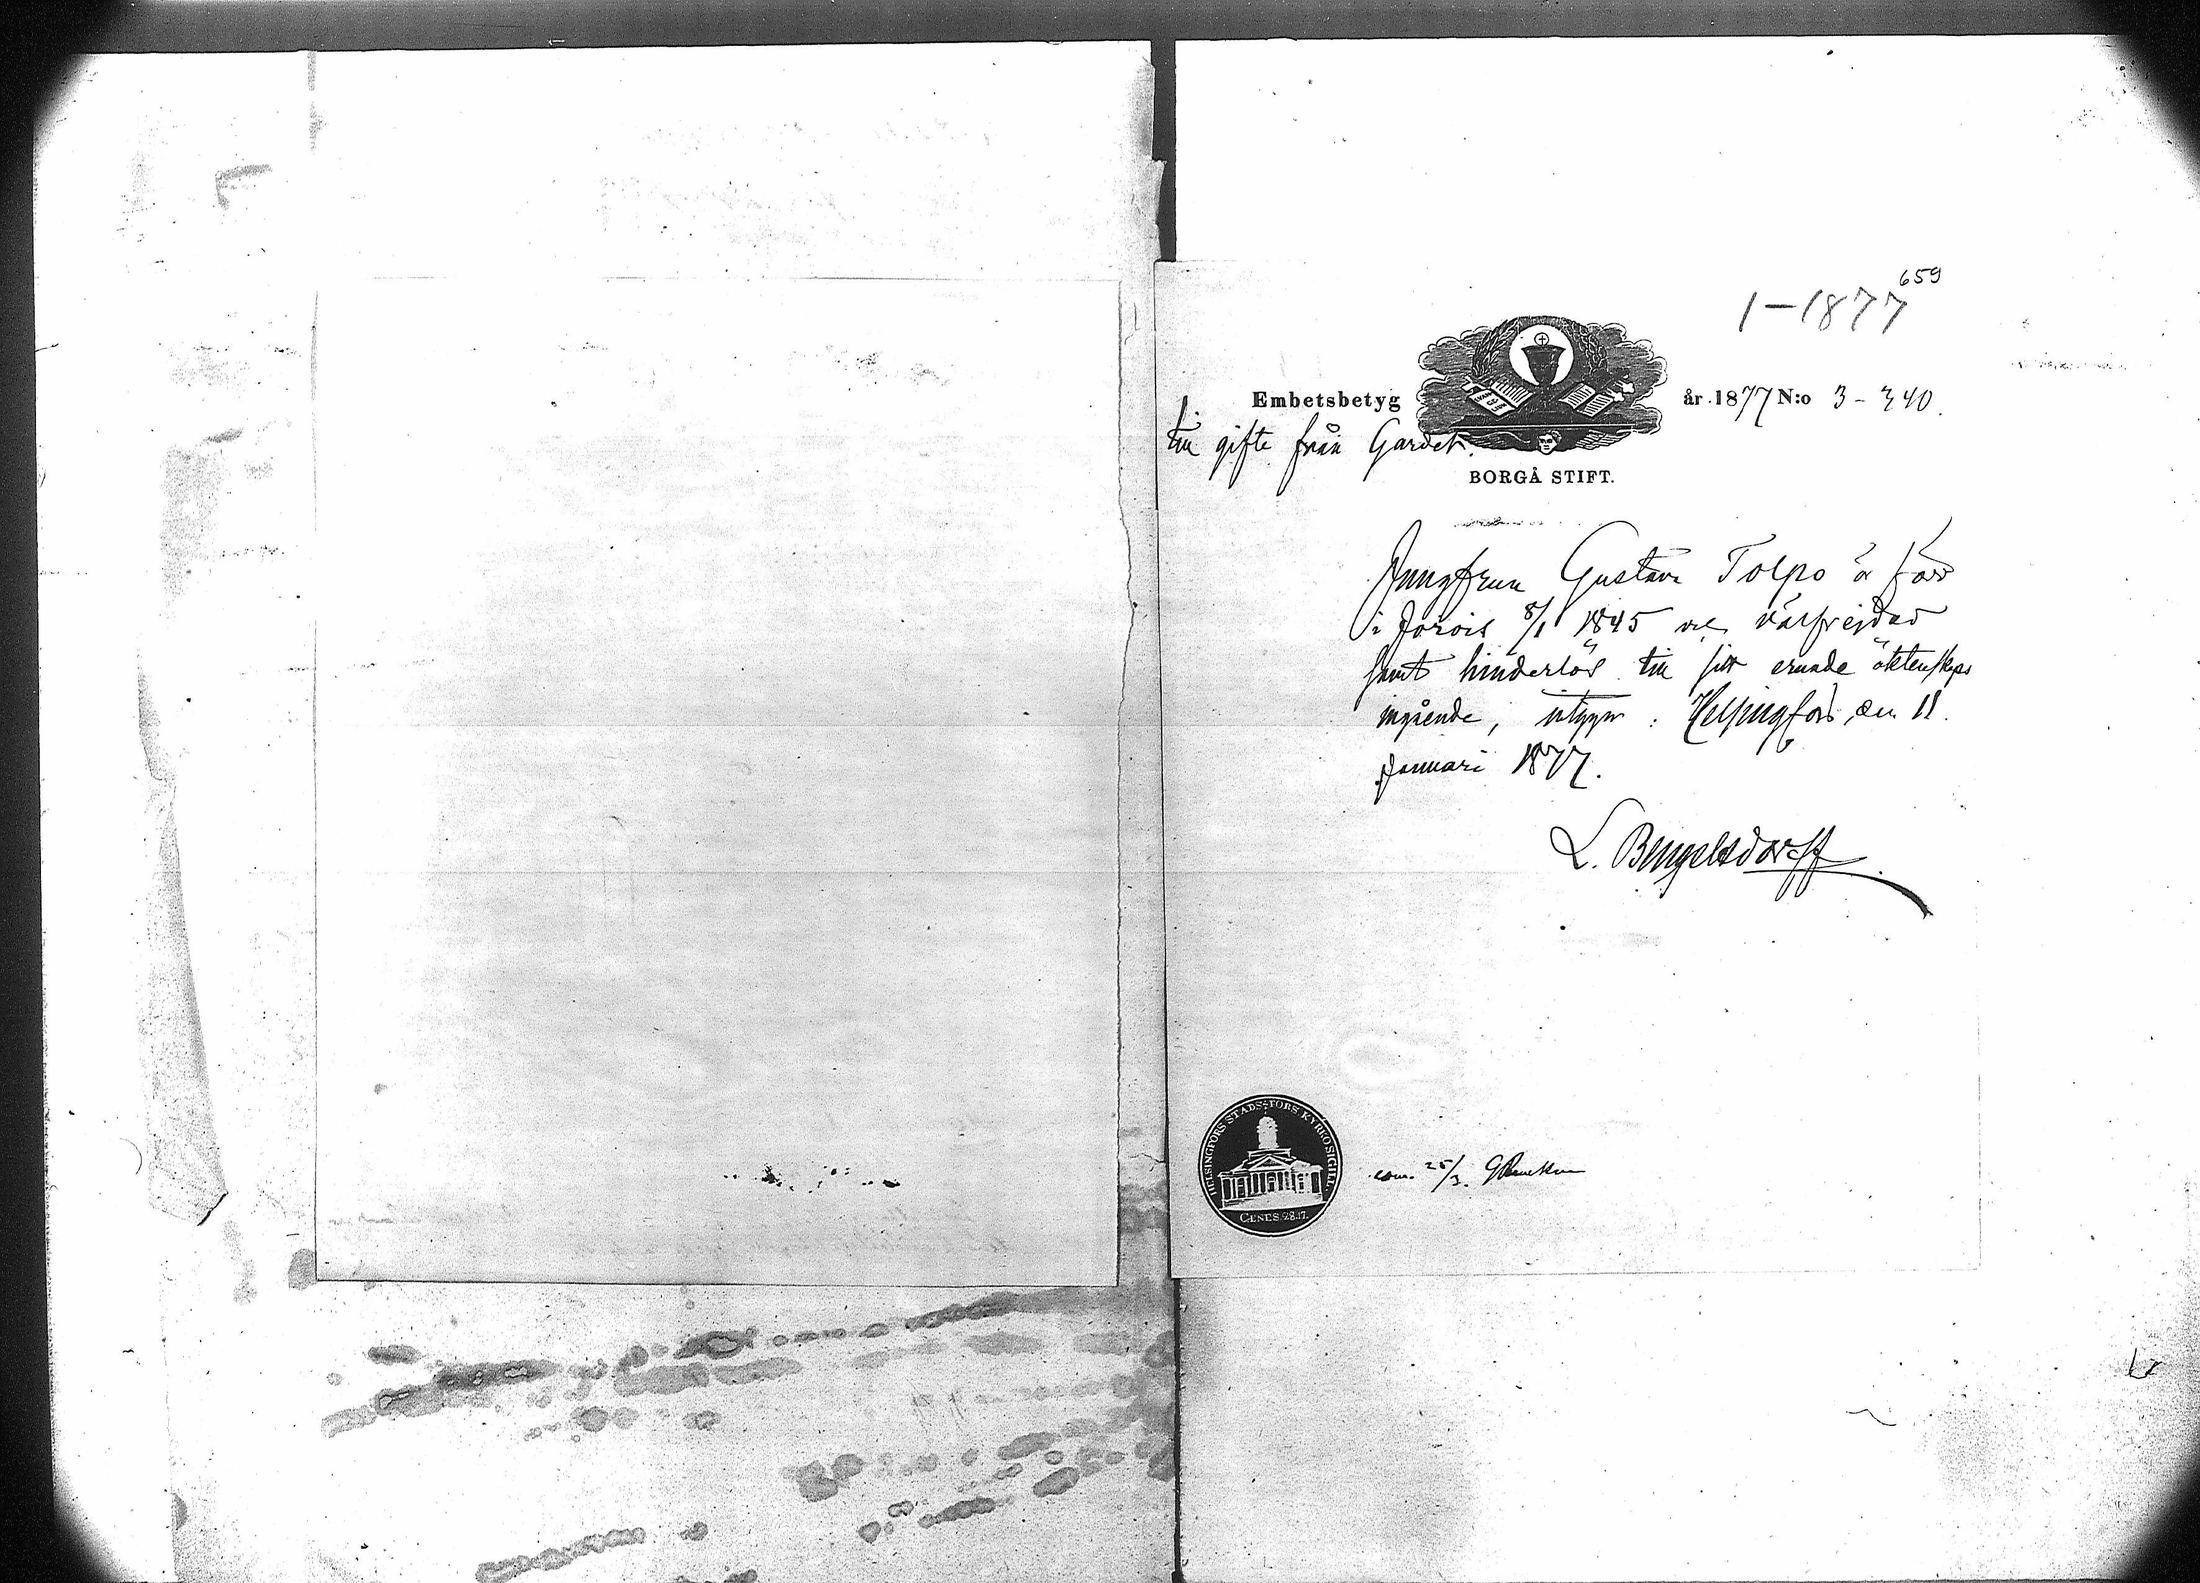 659
1-1877
Embetsbetyg år 1877 N:o 3-340.
till gifte från Gardet.
BORGÅ STIFT.
Jungfrun Gustava Tolpo är född
i Jorois 8/1 1845 väl välfrejdad
samt hinderlös till sitt ernade äktenskaps
ingående, intygar: Helsingfors, den 11
Januari 1877.
L. Bengelsdorff
HELSINGFORS STADS-FÖRS. KYRKOSIGILL.
GENES. 28.17.
com. 25/3.